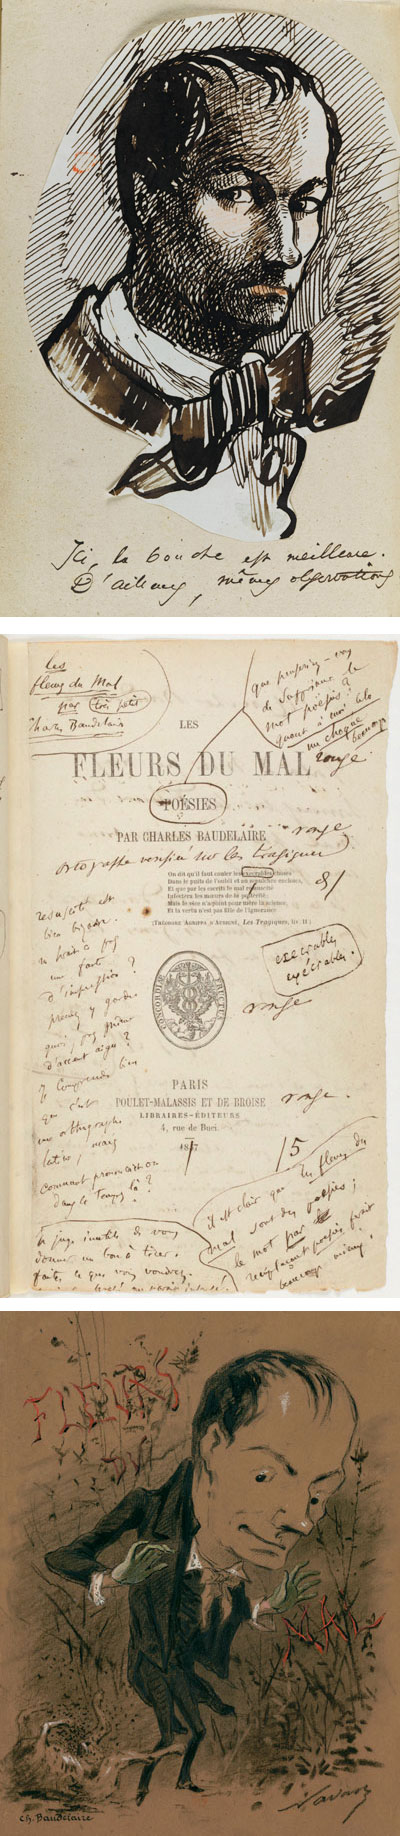 Ici, la bouche est meilleure.
D'ailleurs, mêmes observations
les
fleurs du Mal
par
Charles Baudelaire
que pensez-vous
de supprimer le
mot poésies?
quant à moi cela
me choque
beaucoup
LES
FLEURS DU MAL
rouge
POÉSIES
PAR CHARLES BAUDELAIRE
rouge
ortographe vérifiée sur les tragiques
On dit qu'il faut couler les execrables choses
Dans le puits de l'oubli et au sepulchre encloses,
Et que par les escrits le mal resuscité
Infectera les mœurs de la postérité;
Mais le vice n'a point pour mère la science,
Et la vertu n'est pas fille de l'ignorance.
(THÉODORE AGRIPPA D'AUBIGNÉ, Les Tragiques, liv. II.)
8/
execrables
exécrables.
resuscité est
bien bizarre.
d'impression?
d'accent aigu?
je comprends bien
que c'est
une orthographe
mais
comment prononçait-on
dans le temps là?
CONCORDIÆ FRUCTUS
rouge
PARIS
POULET-MALASSIS ET DE BROISE
LIBRAIRES-ÉDITEURS
4, rue de Buci.
1857
rouge.
je juge inutile de vous
donner un bon à tirer.
faites ce que vous voudrez.
il est clair que les fleurs du
mal sont des poésies;
le mot par
remplaçant poésies ferait
beaucoup mieux.
FLEURS
DU
MAL
Ch. Baudelaire